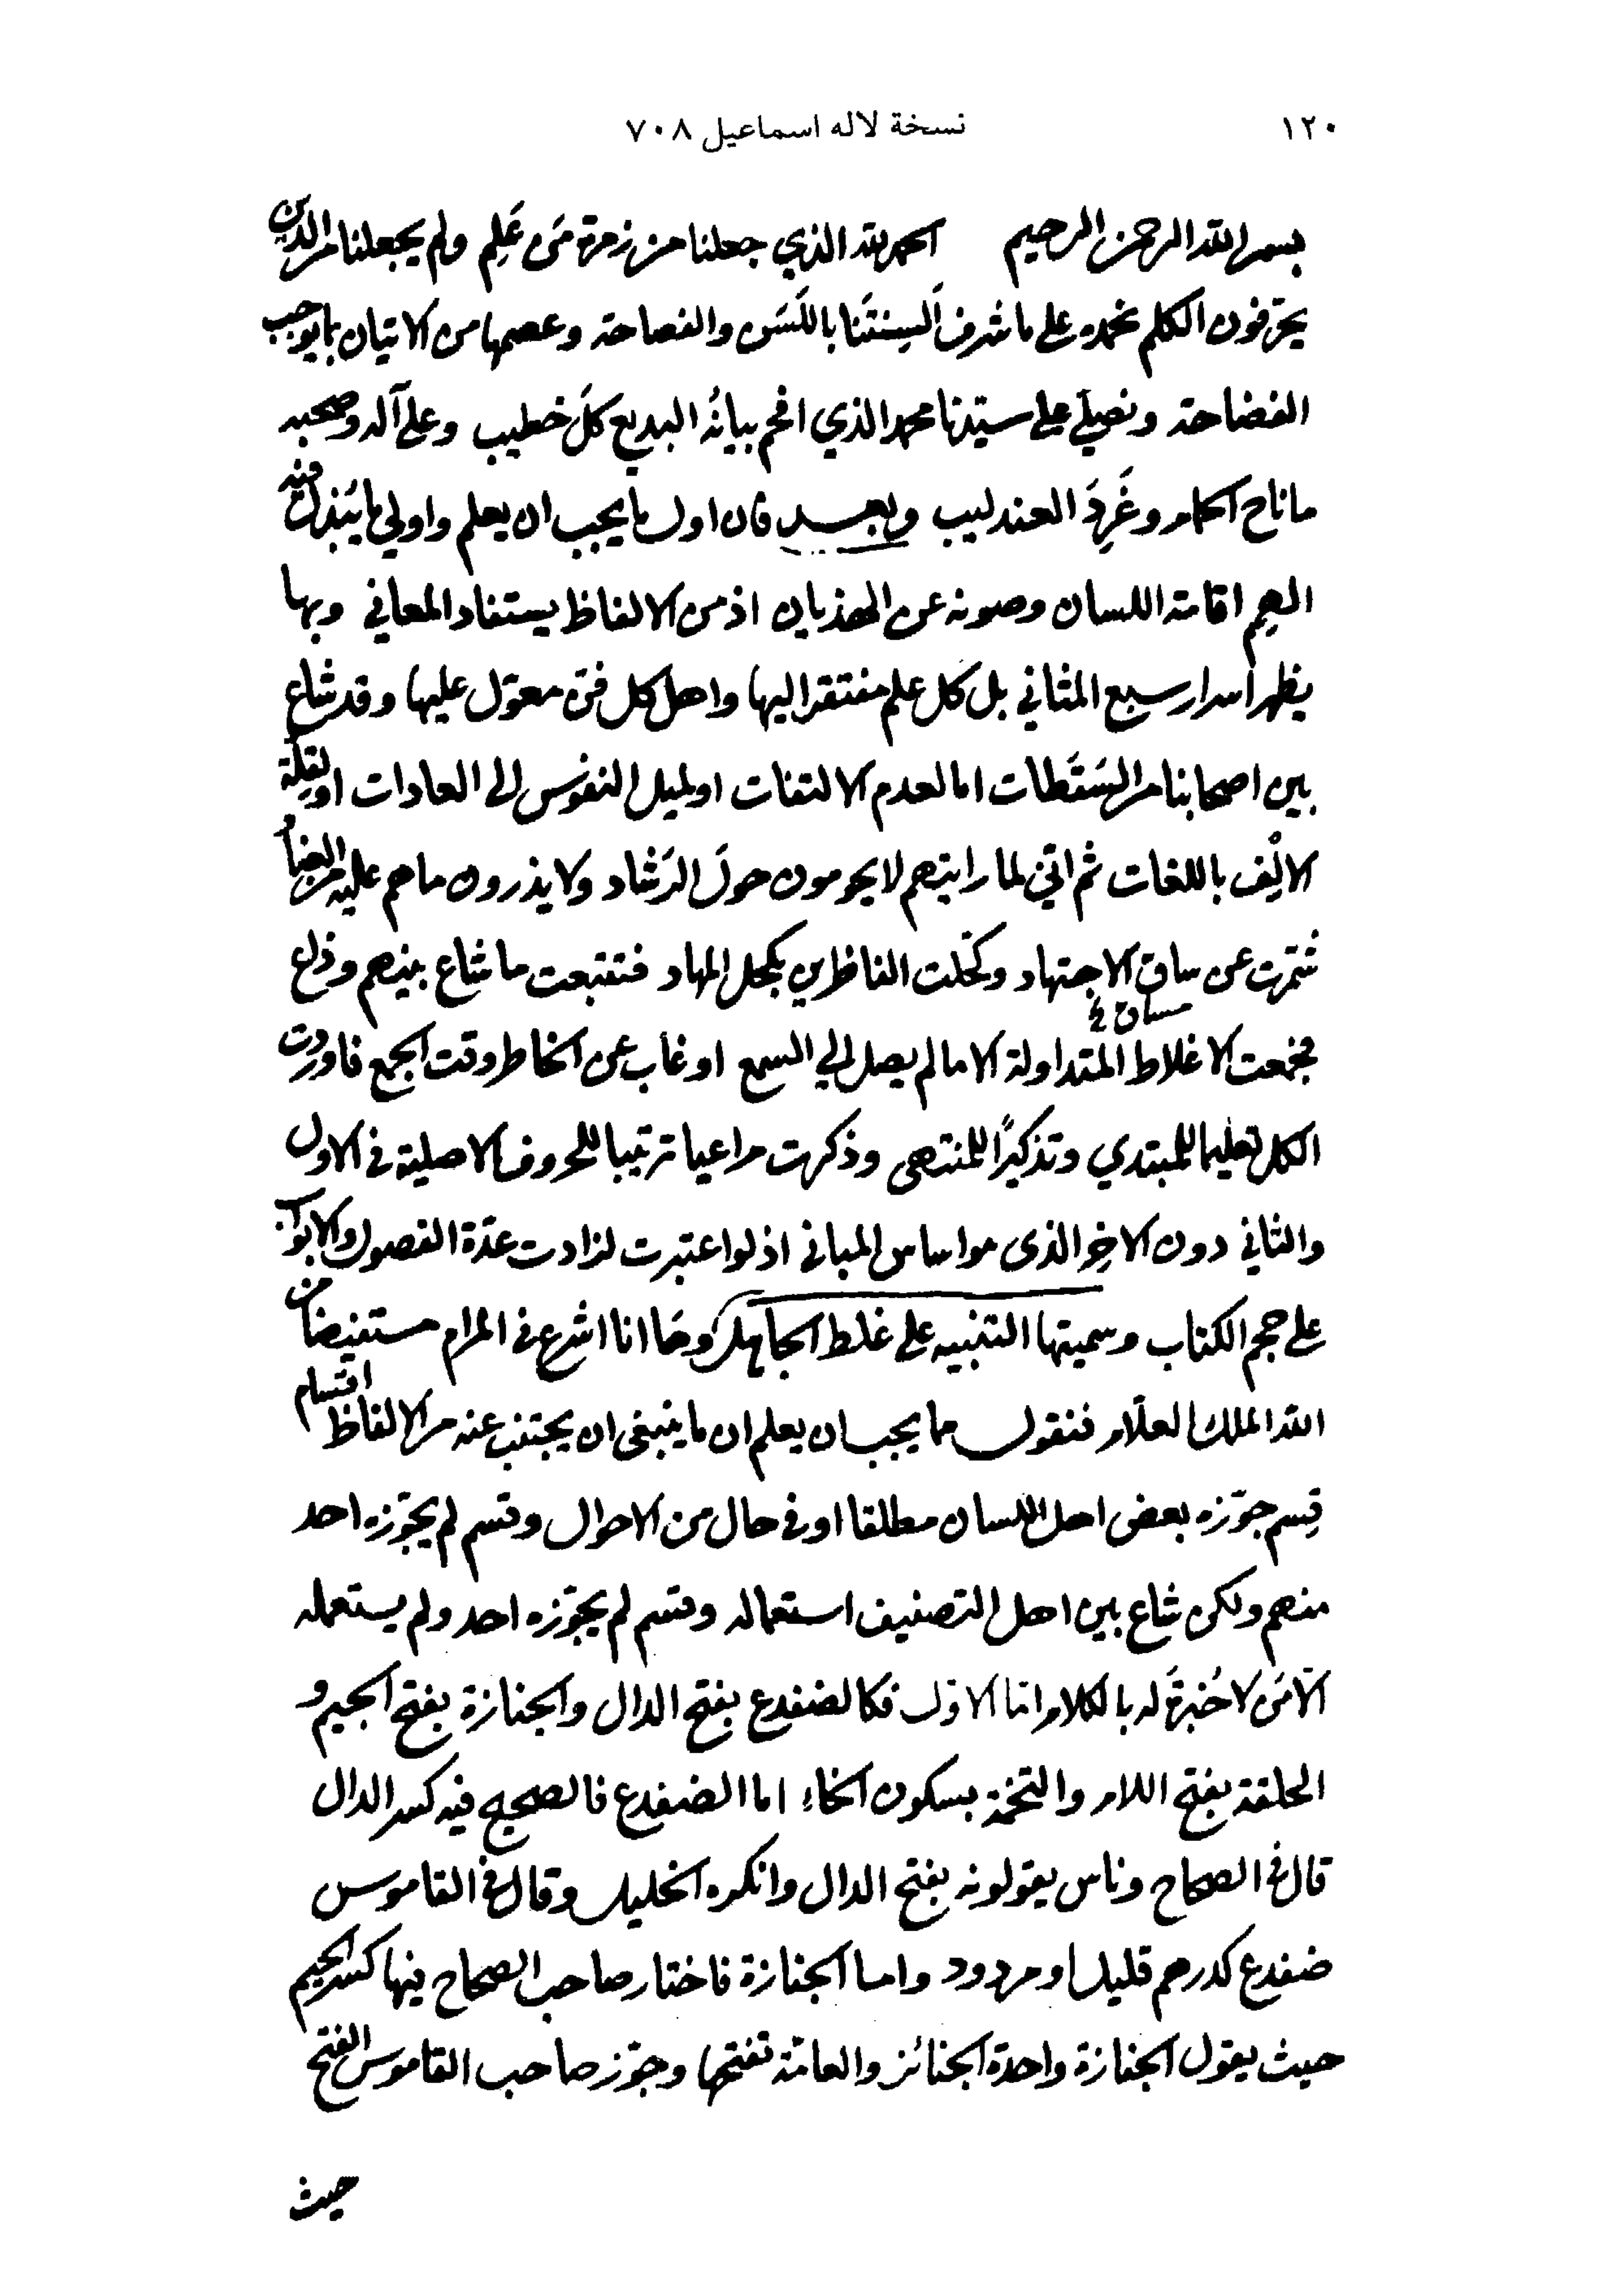 ١٢٠ نسخة لاله اسماعيل ٧٠٨
بسم الله الرحمن الرحيم الحمد لله الذي جعلنا من زمرة مَن عَلِم ولم يجعلنا من الذين
يحرّفون الكلم نحمده على ما شرف اَلسِنتَنا باللَسَن والفصاحة وعصمها من الاتيان بما يوجب
الفضاحة ونصلي على سيّدنا محمد الذي افحم بيانُه البديع كلَ خطيب وعلى آله وصحبه
ما ناح الحمام وغَرِدَ العندليب وبعد فان اول ما يجب ان يعلم واولي ما يُبذل فيه
الهِمم اقامة اللسان وصونه عن الهذيان اذ من الالفاظ يستفاد المعاني وبها
يظهر اسرار سبع المثاني بل كل علم مفتقر اليها واهل كل فن معوّل عليها وقد شاع
بين اصحابنا من السَقَطات اما لعدم الالتفات او لميل النفوس الى العادات او لقِلة
الالْف باللغات ثم انّي لما رايتهم لا يحومون حولَ الرَشاد ولا يذرون ما هم عليه من العناد
شمّرت عن ساق الاجتهاد وكحّلت الناظرين بكحل السهاد فتتبعت ما شاع بينهم وذاع
فجمعت الاغلاط المتداولة الا ما لم يصل الي السمع او غاب عن الخاطر وقت الجمع فاوردت
الكل تعليما للمبتدي وتذكيرًا للمنتهى وذكرت مراعيا ترتيبا للحروف الاصلية في الاول
والثاني دون الاخِر الذى هو اساس المباني اذ لو اعتبرت لزادت عدّة الفصول والابواب
على حجم الكتاب وسميتها التنبيه على غلط الجاهل وها انا اشرع في المرام مستفيضا من
الله الملك العلّام فنقول مما يجب ان يعلم ان ما ينبغى ان يجتنب عنه من الالفاظ اقسام
قِسم جوّزه بعض اهل اللسان مطلقا او في حال من الاحوال وقسم لم يجوّزه احد
منهم ولكن شاع بين اهل التصنيف استعماله وقسم لم يجوّزه احد ولم يستعمله
الّا مَن لا خُبرةَ له بالكلام امّا الاوّل فكالضفدع بفتح الدال والجنازة بفتح الجيم و
الحلقة بفتح اللام والتخمة بسكون الخاء اما الضفدع فالصحيح فيه كسر الدال
قال في الصحاح وناس يقولونه بفتح الدال وانكره الخليل وقال في القاموس
ضفدع كدرهم قليل او مردود واما الجنازة فاختار صاحب الصحاح فيها كسر الجيم
حيث يقول الجنازة واحدة الجنائز والعامّة تفتحها وجوّز صاحب القاموس الفتح
حيث